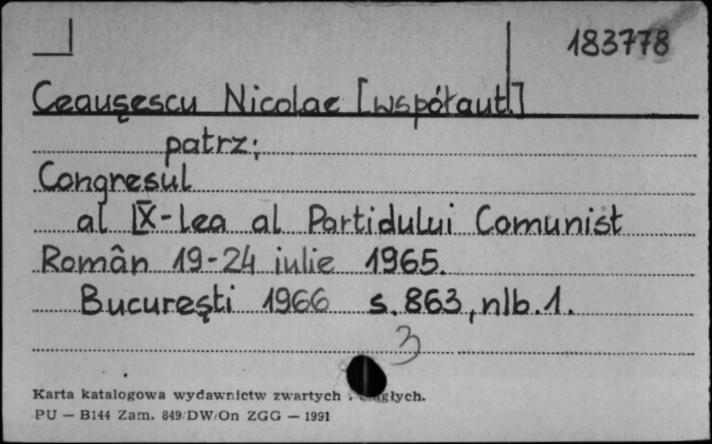 183778
Ceauşescu Nicolae [współaut.]
patrz:
Congresul
al IX-lea al Partidului Comunist
Român 19-24 iulie 1965.
Bucureşti 1966 s. 863, nlb. 1.
3
Karta katalogowa wydawnictw zwartych i ciągłych.
PU — B144 Zam. 849/DW/On ZGG — 1991